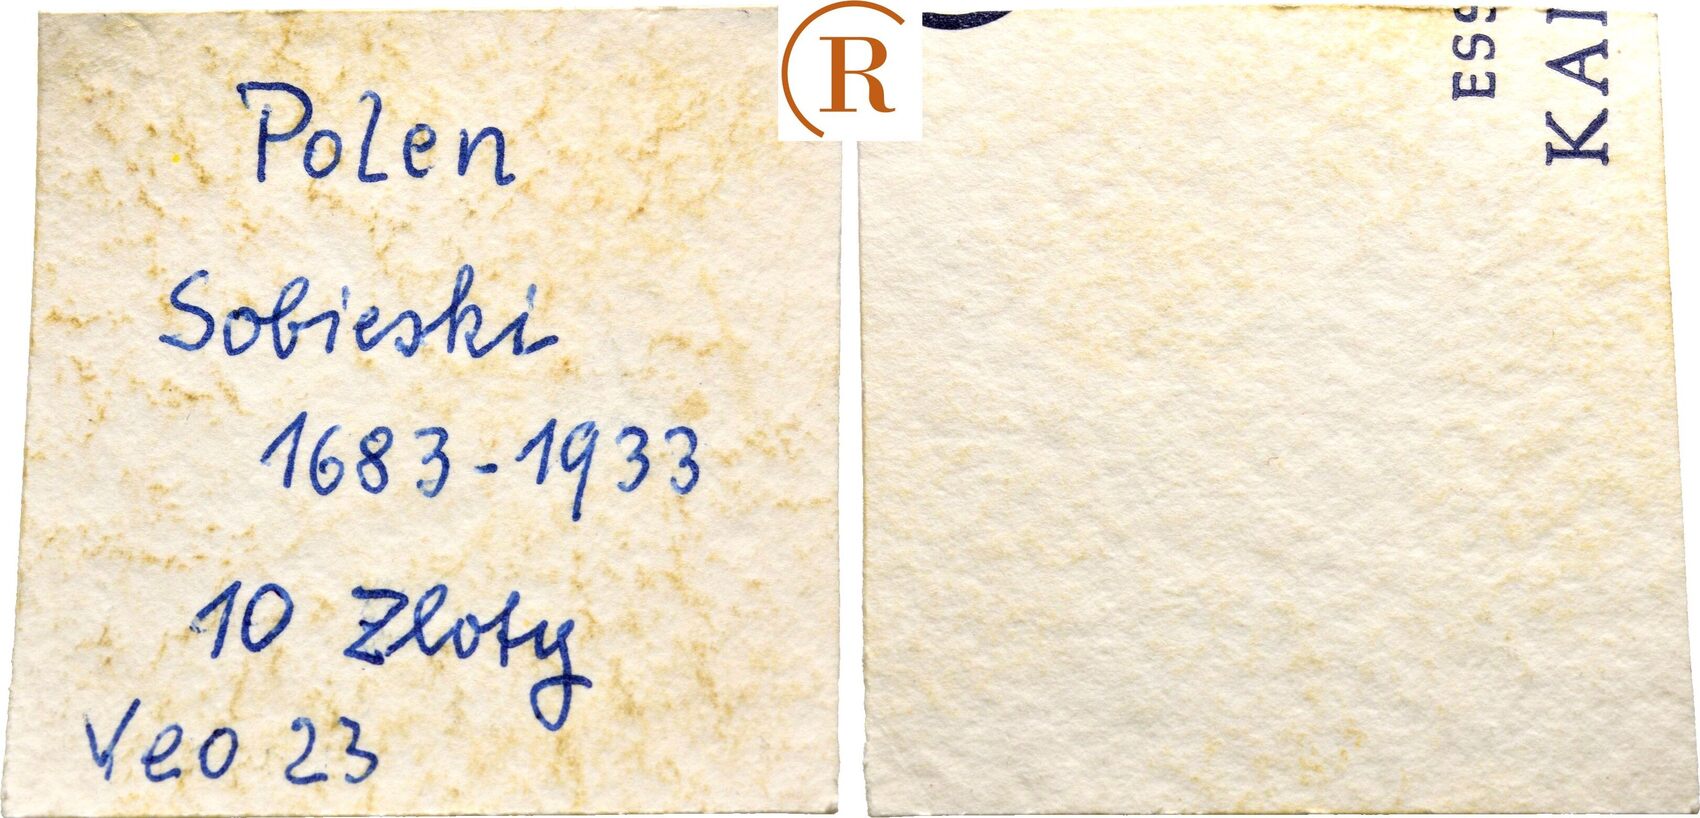 Polen
Sobieski
1683-1933
10 Zloty
Yeo 23
R
ESS
KA